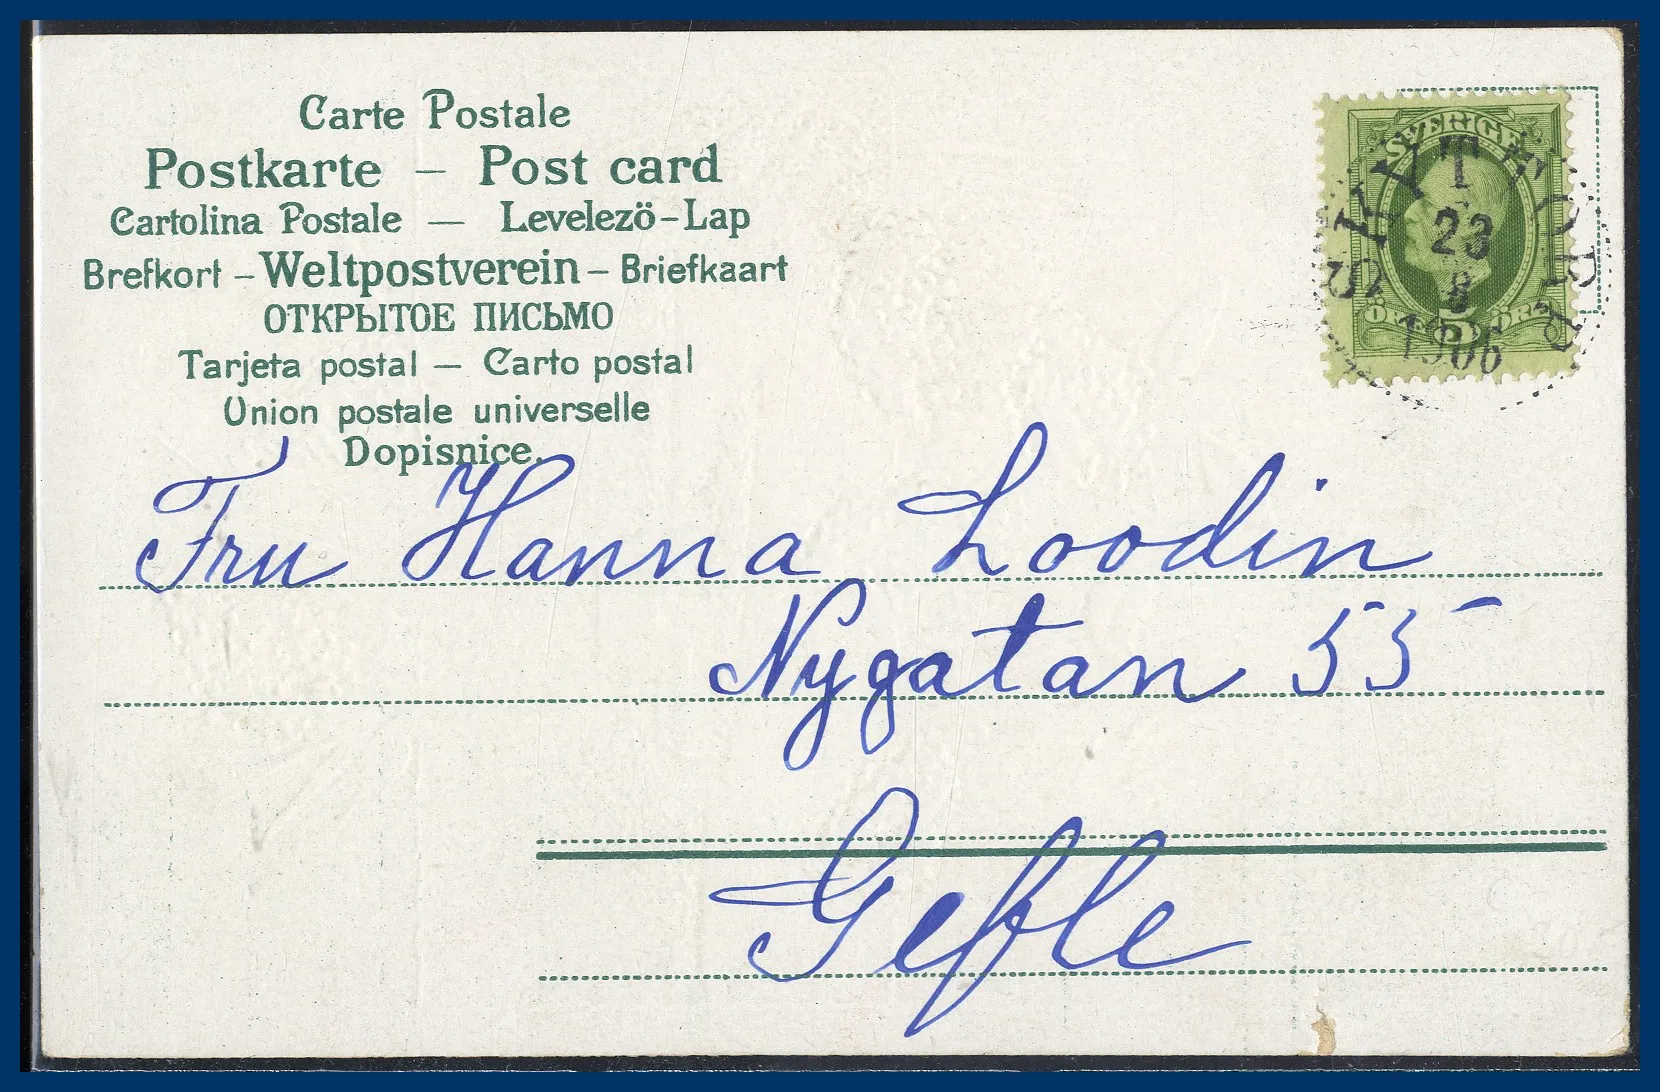 Carte Postale
Postkarte – Post card
Cartolina Postale — Levelező-Lap
Brefkort – Weltpostverein – Briefkaart
ОТКРЫТОЕ ПИСЬМО
Tarjeta postal — Carto postal
Union postale universelle
Dopisnice.
SVERIGE
5
ÖRE ÖRE
SKUTTORP
23
8
1906
Fru Hanna Loodin
Nygatan 55
Gefle